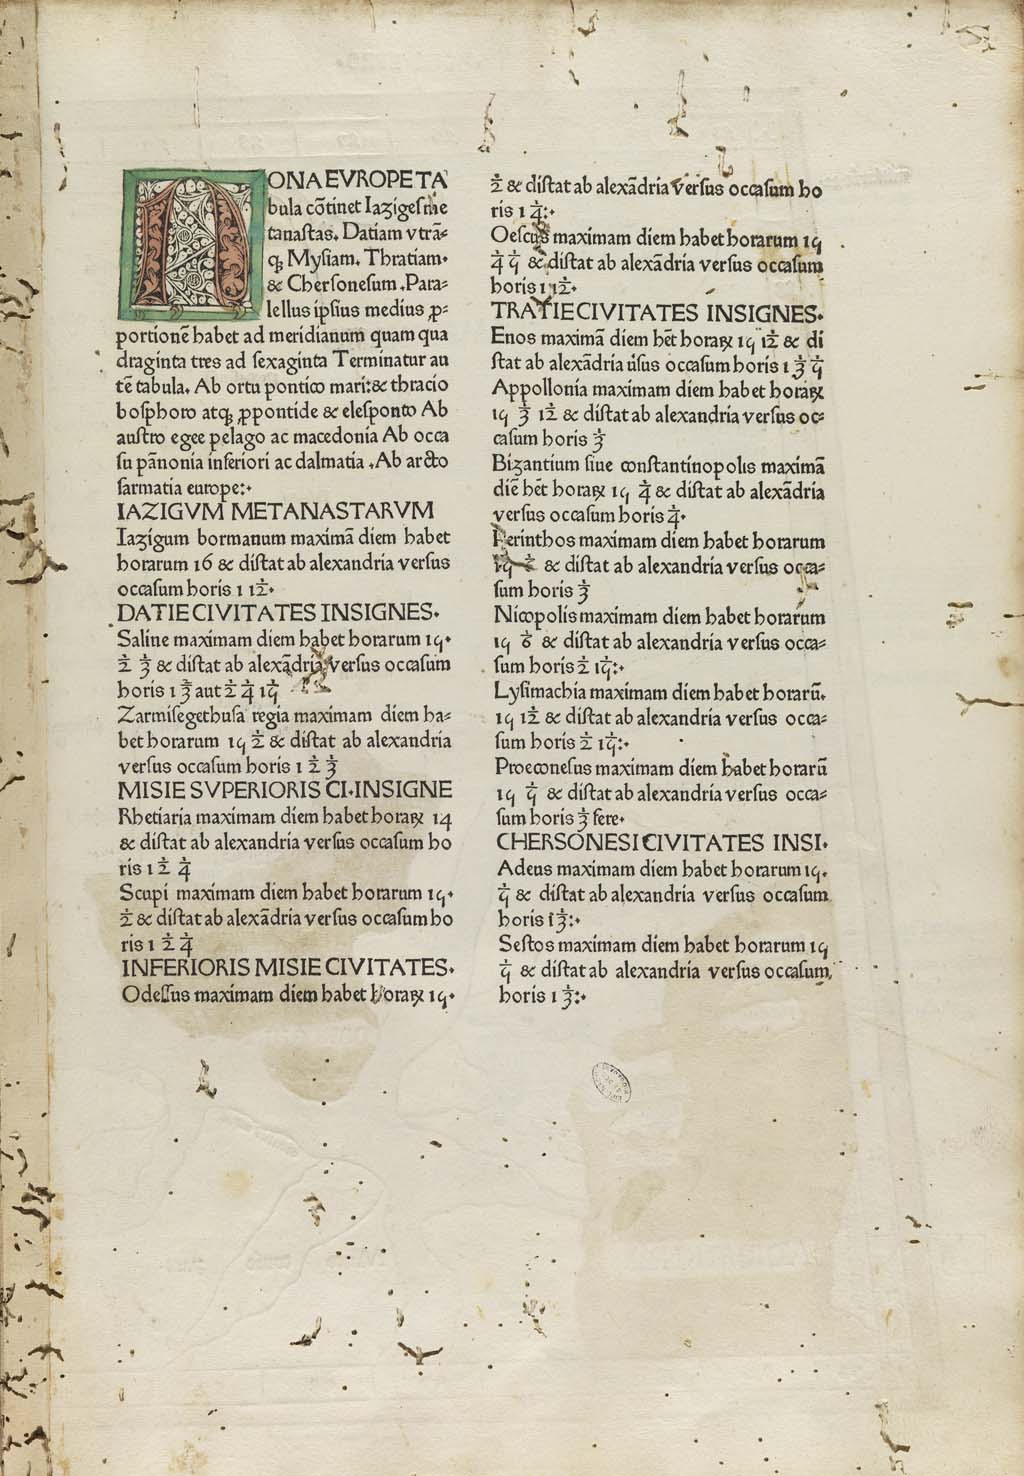 NONA EVROPE TA
bula cõtinet Iazigeſ me
tanaſtas. Datiam vtrã⸗
qꝫ Myſiam. Thratiam.
& Cherſoneſum .Para⸗
lellus ipſius medius ꝓ⸗
portionẽ habet ad meridianum quam qua
draginta tres ad ſexaginta Terminatur au
tẽ tabula. Ab ortu pontico mari:& thracio
boſphoro atqꝫ ꝓpontide & eleſponto Ab
auſtro egee pelago ac macedonia Ab occa
ſu pãnonia inferiori ac dalmatia .Ab arcto
ſarmatia europe:.
IAZIGVM METANASTARVM
Iazigum bormanum maximã diem habet
horarum 16 & diſtat ab alexandria verſus
occaſum horis 1 1/12.
DATIE CIVITATES INSIGNES.
Saline maximam diem habet horarum 15.
1/2 1/3 & diſtat ab alexãdria verſus occaſum
horis 1 2/3 aut 1/2 1/4 1/15
Zarmiſegethuſa regia maximam diem ha⸗
bet horarum 15 1/2 & diſtat ab alexandria
verſus occaſum horis 1 1/2 1/3
MISIE SVPERIORIS CI.INSIGNE
Rhetiaria maximam diem habet horaꝝ 14
& diſtat ab alexandria verſus occaſum ho
ris 1 1/2 1/4
Scupi maximam diem habet horarum 15.
1/2 & diſtat ab alexãdria verſus occaſum ho
ris 1 1/2 1/4
INFERIORIS MISIE CIVITATES.
Odeſſus maximam diem habet horaꝝ 15.
1/2 & diſtat ab alexãdria verſus occaſum ho
ris 1 1/4:.
Oeſcus maximam diem habet horarum 15
1/4 1/5 & diſtat ab alexãdria verſus occaſum
horis 1 1/12.
TRATIE CIVITATES INSIGNES.
Enos maximã diem hẽt horaꝝ 15 1/12 & di
ſtat ab alexãdria ũſus occaſum horis 1 1/3 1/5
Appollonia maximam diem habet horaꝝ
15 1/3 1/12 & diſtat ab alexandria verſus oc⸗
caſum horis 1/3
Bizantium ſiue conſtantinopolis maximã
diẽ hẽt horaꝝ 15 1/4 & diſtat ab alexãdria
verſus occaſum horis 1/4.
Perinthos maximam diem habet horarum
& diſtat ab alexandria verſus occa⸗
ſum horis 1/3
Nicopolis maximam diem habet horarum
15 1/6 & diſtat ab alexandria verſus occa⸗
ſum horis 1/2 1/15:.
Lyſimachia maximam diem habet horarũ.
15 1/12 & diſtat ab alexandria verſus occa⸗
ſum horis 1/2 1/15:.
Proeconeſus maximam diem habet horarũ
15 1/5 & diſtat ab alexandria verſus occa⸗
ſum horis 1/3 fere.
CHERSONESI CIVITATES INSI.
Adeus maximam diem habet horarum 15.
1/5 & diſtat ab alexandria verſus occaſum
horis 1 1/3:.
Seſtos maximam diem habet horarum 15
1/5 & diſtat ab alexandria verſus occaſum
horis 1 1/3:.